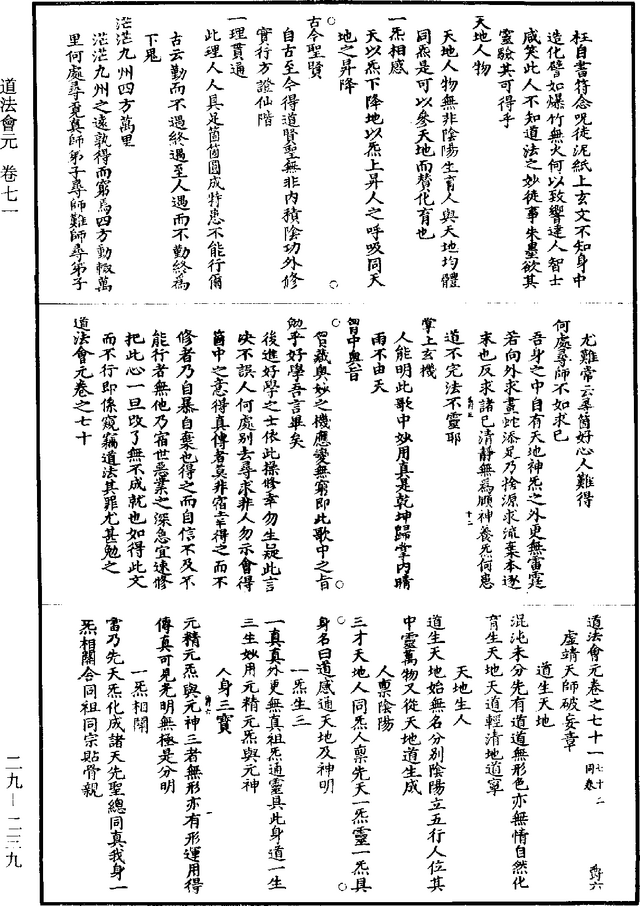 道法會元 卷七一
二九—二三九
枉自書符念呪徒泥紙上玄文不知身中
造化譬如爆竹無火何以致響達人智士
咸笑此人不知道法之妙徒事朱墨欲其
靈驗其可得乎
天地人物
天地人物無非陰陽生育人與天地均體
同炁是可以參天地而賛化育也
一炁相感
天以炁下降地以炁上昇人之呼吸同天
地之昇降
古今聖賢
自古至今得道賢聖無非內積陰功外修
實行方證仙階
一理貫通
此理人人具足箇箇圓成特患不能行爾
古云勤而不遇終遇至人遇而不勤終爲
下鬼
茫茫九州四方萬里
茫茫九州之遠孰得而窮焉四方動輙萬
里何處尋覓真師弟子尋師難師尋弟子
尤難常云尋箇好心人難得
何處尋師不如求己
吾身之中自有天地神炁之外更無雷霆
若向外求畫蛇添足乃捨源求流棄本逐
末也反求諸己清靜無爲頤神養炁何患
道不完法不靈耶
掌上玄機
人能明此歌中妙用真是乾坤歸掌內晴
雨不由天
胷中奧旨
胷藏奥妙之機應變無窮即此歌中之旨
勉乎好學吾言畢矣
後進好學之士依此操修幸勿生疑此言
決不誤人何處别去尋求非人勿示會得
箇中之意得真傳者莫非宿幸得之而不
修者乃自暴自棄也得之而自信不及不
能行者無他乃宿世惡業之深急宜速修
把此心一旦改了無不成就也如得此文
而不行即係窺竊道法其罪尤甚勉之
道法會元卷之七十
道法會元卷之七十一 七十二同卷 爵六
虛靖天師破妄章
道生天地
混沌未分先有道道無形色亦無情自然化
育生天地天道輕清地道寧
天地生人
道生天地始無名分别陰陽立五行人位其
中靈萬物又從天地道生成
人禀陰陽
三才天地人同炁人禀先天一炁靈一炁具
身名曰道感通天地及神明
一炁生三
一真真外更無真祖炁通靈具此身道一生
三生妙用元精元炁與元神
人身三寶
元精元炁與元神三者無形亦有形運用得
傳真可見光明無極是分明
一炁相關
當乃先天炁化成諸天先聖總同真我身一
炁相關合同祖同宗貼骨親